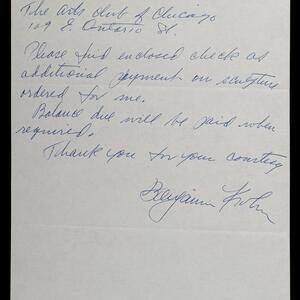 The Arts Club of Chicago
109 E. Ontario St.
Please find enclosed check as
additional payment on sculpture
ordered for me.
Balance due will be paid when
required.
Thank you for your courtesy
Benjamin